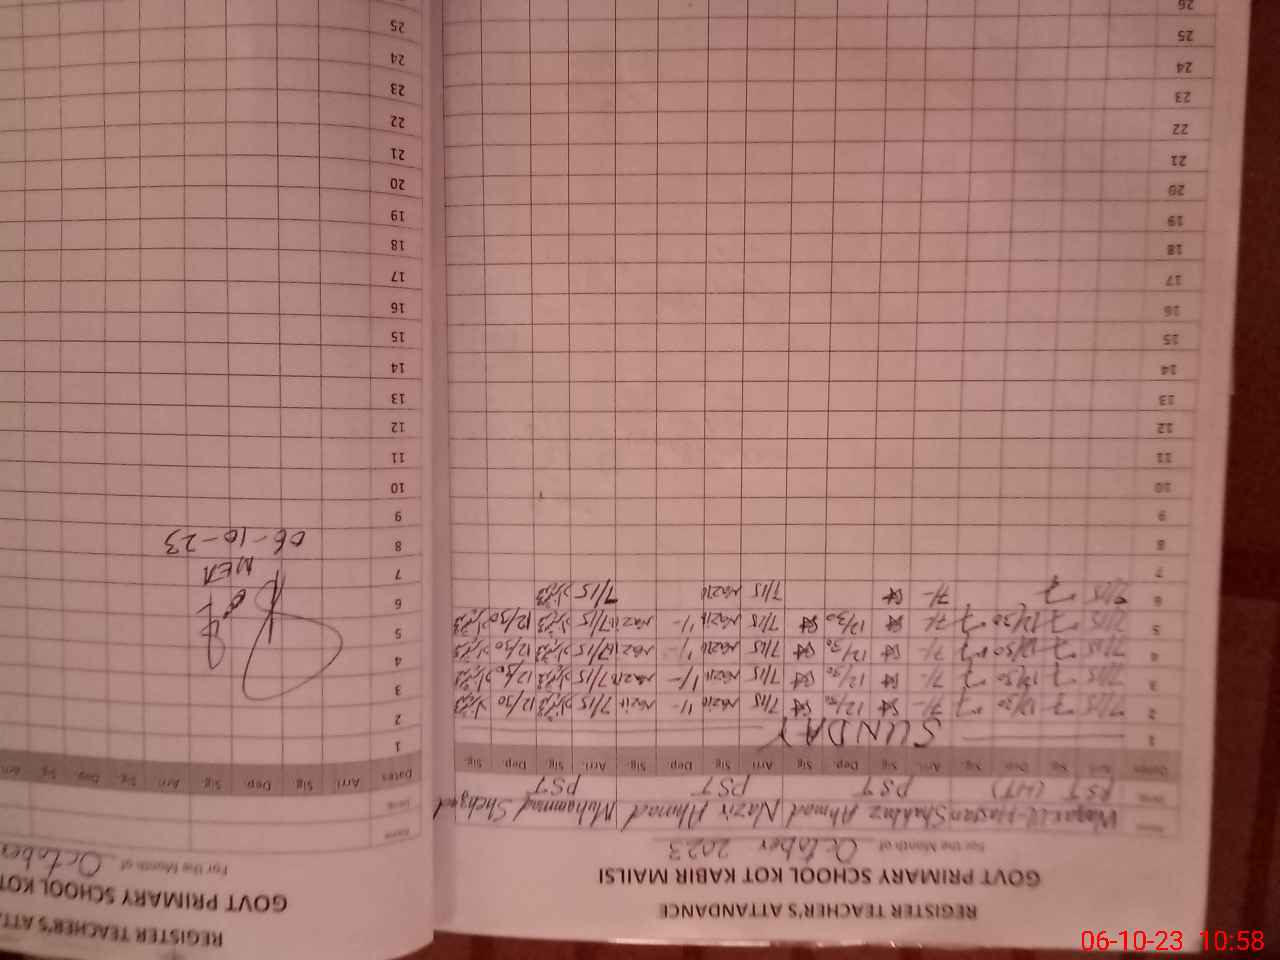 REGISTER TEACHER'S ATTANDANCE
GOVT PRIMARY SCHOOL KOT KABIR MAILSI
For the Month of October 2023
Name Waqar Ul-Hassan Shahbaz Ahmad Nazir Ahmad Muhammad Shehzad
Desig. PST (HT) PST PST PST
Dates Arri. Sig. Dep. Sig. Arri. Sig. Dep. Sig. Arri. Sig. Dep. Sig. Arri. Sig. Dep. Sig.
1 SUNDAY
2 7/15 12/30 7/- 12/30 7/15 Nazir 1/- Nazir 7/15 12/30
3 7/15 12/30 7/- 12/30 7/15 Nazir 1/- Nazir 7/15 12/30
4 7/15 12/30 7/- 12/30 7/15 Nazir 1/- Nazir 7/15 12/30
5 7/15 12/30 7/- 12/30 7/15 Nazir 1/- Nazir 7/15 12/30
6 7/15 7/- 7/15 Nazir 7/15
7
8
9
10
11
12
13
14
15
16
17
18
19
20
21
22
23
24
25
26
REGISTER TEACHER'S ATT
GOVT PRIMARY SCHOOL KOT
For the Month of October
Name
Desig.
Dates Arri. Sig. Dep. Sig. Arri. Sig. Dep. Sig. Arri.
1
2
3
4
5
6
7 MEA
8 06-10-23
9
10
11
12
13
14
15
16
17
18
19
20
21
22
23
24
25
06-10-23 10:58